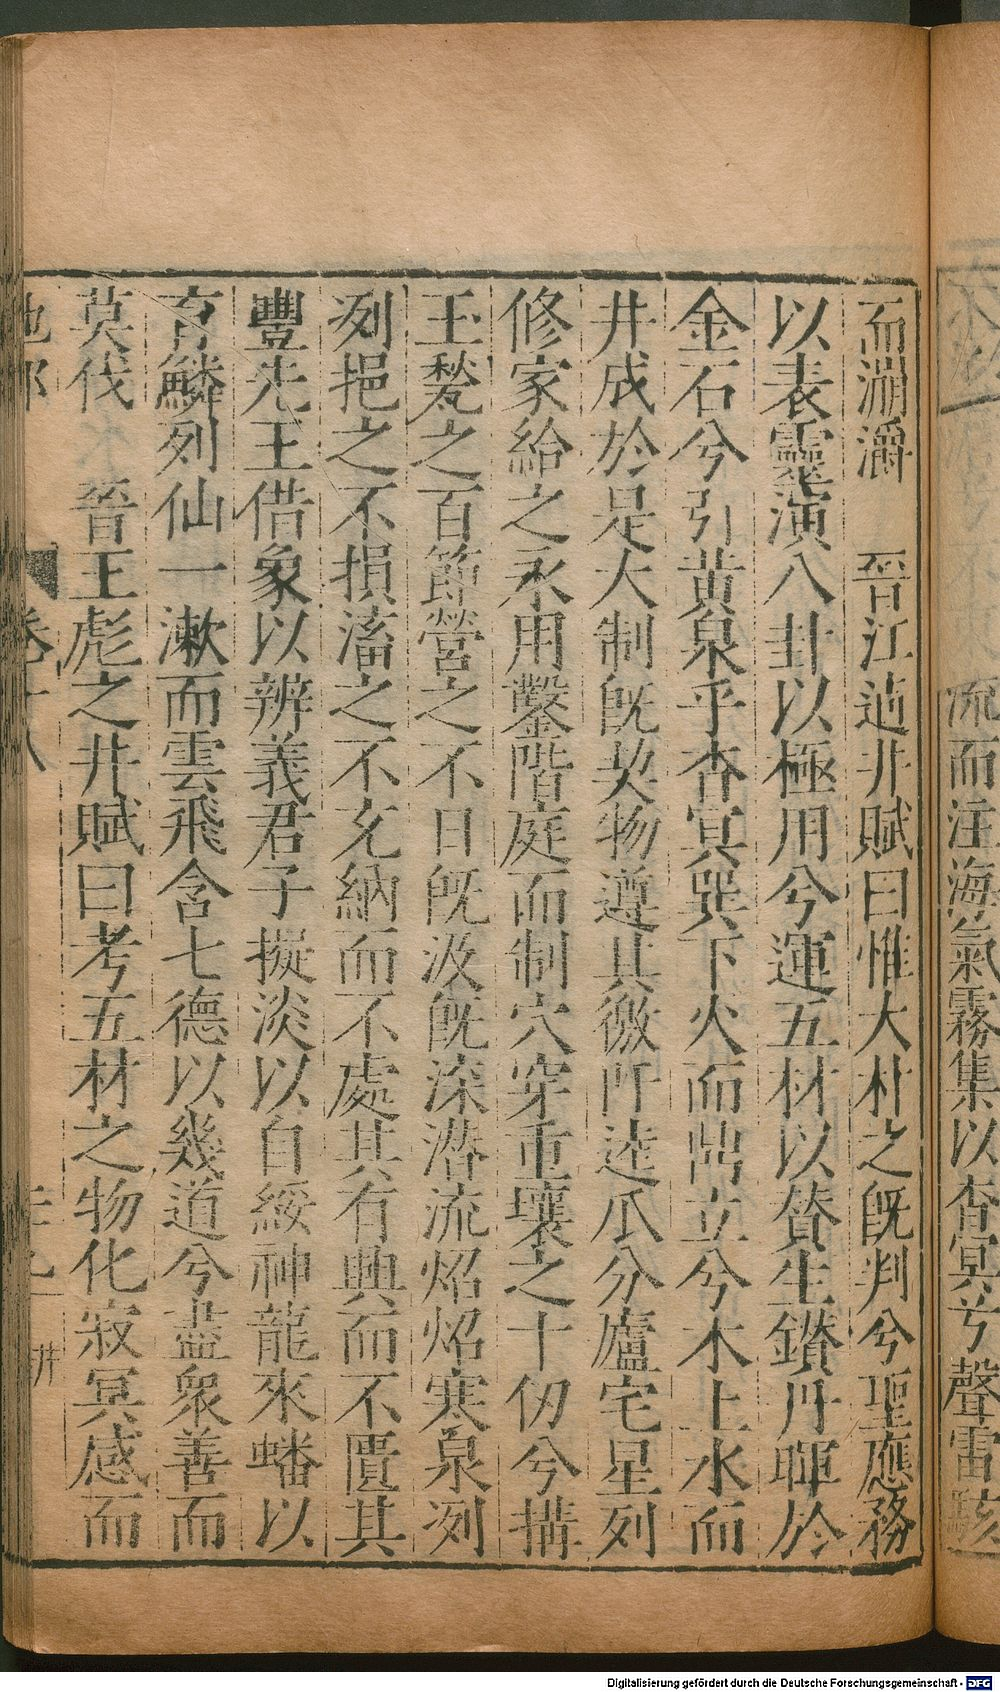 流而注海氣霧集以杳冥兮聲雷駭
而淵瀞　晉江逌井賦曰惟大朴之旣判兮聖應務
以表靈演八卦以極用兮運五材以贊生鑽丹暉於
金石兮引黃泉乎杳冥巽下火而爲立兮木上水而
井成於是大制旣契物遵其徽阡逵瓜分廬宅星列
修家給之永用鑿階庭而制穴穿重壤之十仞兮搆
玉甃之百節營之不日旣汲旣深潛流焰焰寒泉冽
冽挹之不損滀之不充納而不處其有興而不匱其
豐先王借象以辨義君子擬淡以自綏神龍來蟠以
育鱗列仙一漱而雲飛含七德以幾道兮盡衆善而
莫伐　晉王彪之井賦曰考五材之物化寂冥感而
地部　卷十八　井
Digitalisierung gefördert durch die Deutsche Forschungsgemeinschaft - DFG